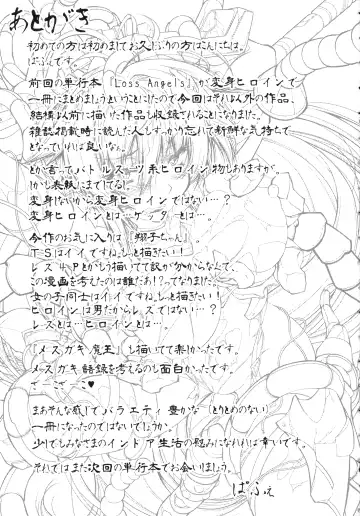 あとがき
初めての方は初めましてお久しぶりの方はこんにちは。
ぱふぇです。
前回の単行本『Loss Angels』が変身ヒロインで
一冊にまとめましょうということにしたので今回はそれ以外の作品、
結構以前に描いた作品も収録されることになりました。
雑誌掲載時に読んだ人もすっかり忘れて新鮮な気持ちで
となっていれば良いなぁ。
とか言ってバトルスーツ系ヒロイン物もありますが。
しかも表紙にまで！てる）。
変身しないから変身ヒロインではない…？
変身ヒロインとは…ゲッターとは…。
今作のお気に入りは『翔子ちゃん』。
TSはイイですね。もっと描きたい！
レズ4Pとかもう描いてて訳が分からなくて、
この漫画を考えたのは誰だあ！？ってなりました。
女の子同士はイイですね。もっと描きたい！
ヒロインは男だからレズではない…？
レズとは…ヒロインとは…。
『メスガキ魔王』も描いてて楽しかったです。
メスガキ語録を考えるのも面白かったです。
ざーこざーこ♥
まあそんな感じでバラエティ豊かな（とりとめのない）
一冊になったのではないでしょうか。
少しでもみなさまのインドア生活の慰みになれれば幸いです。
それではまた次回の単行本でお会いしましょう。
ぱふぇ